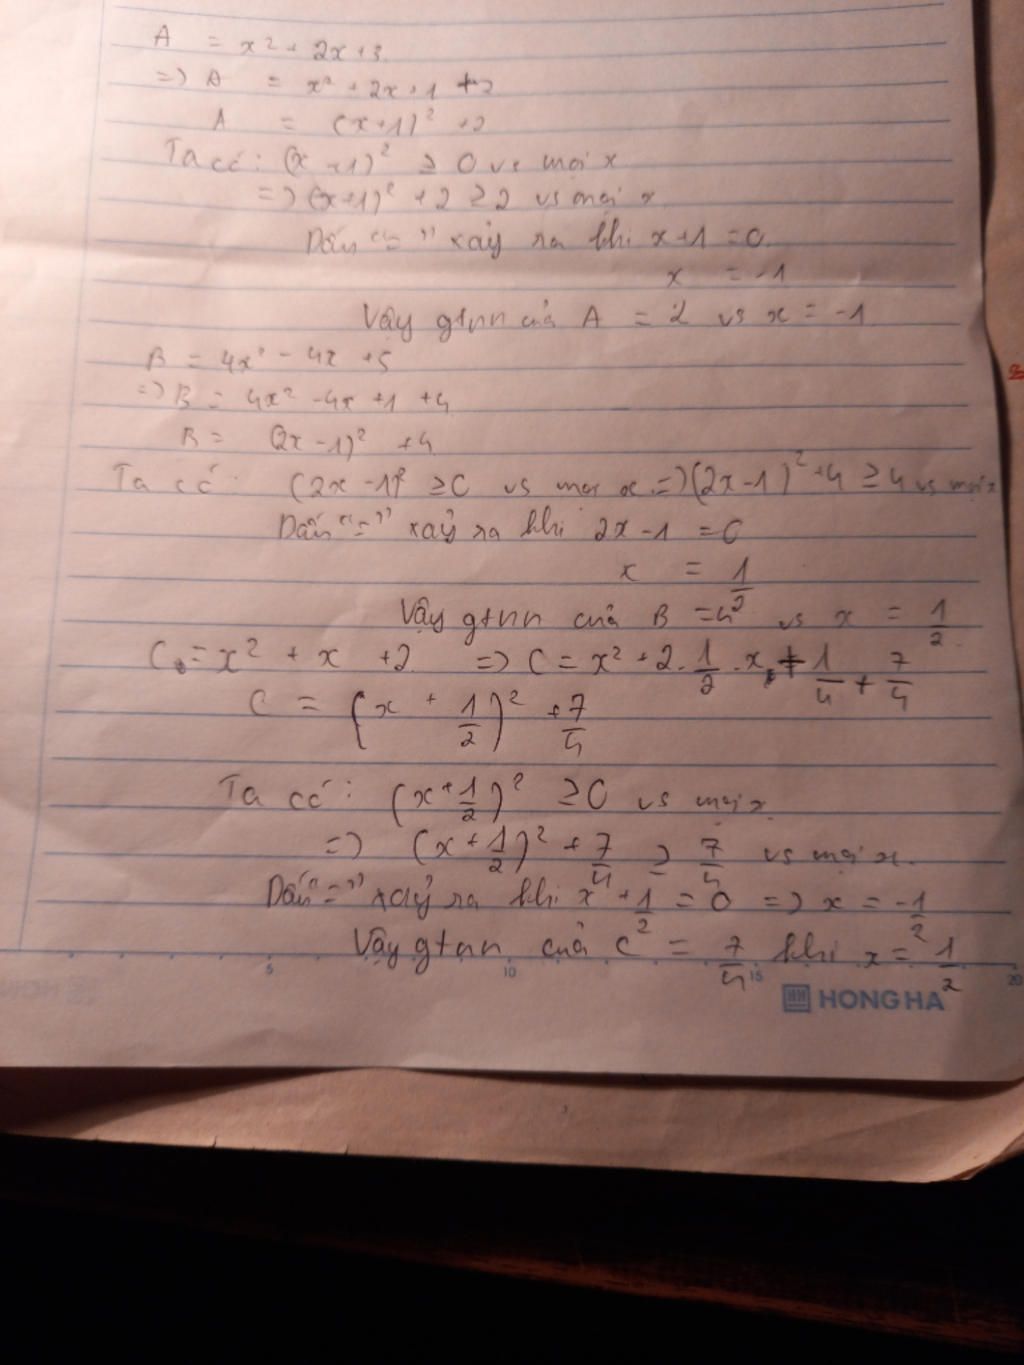 A = x² + 2x + 3
=> A = x² + 2x + 1 + 2
A = (x+1)² + 2
Ta có: (x+1)² ≥ 0 vs mọi x
=> (x+1)² + 2 ≥ 2 vs mọi x
Dấu "=" xảy ra khi x+1 = 0
x = -1
Vậy gtnn của A = 2 vs x = -1
B = 4x² - 4x + 5
=> B = 4x² - 4x + 1 + 4
B = (2x - 1)² + 4
Ta có: (2x - 1)² ≥ 0 vs mọi x => (2x-1)² + 4 ≥ 4 vs mọi x
Dấu "=" xảy ra khi 2x - 1 = 0
x = 1/2
Vậy gtnn của B = 4 vs x = 1/2
C = x² + x + 2 => C = x² + 2 . 1/2 . x + 1/4 + 7/4
C = (x + 1/2)² + 7/4
Ta có: (x + 1/2)² ≥ 0 vs mọi x
=> (x + 1/2)² + 7/4 ≥ 7/4 vs mọi x.
Dấu "=" xảy ra khi x + 1/2 = 0 => x = -1/2
Vậy gtnn của C = 7/4 khi x = 1/2
5 10 15 20
HONG HA